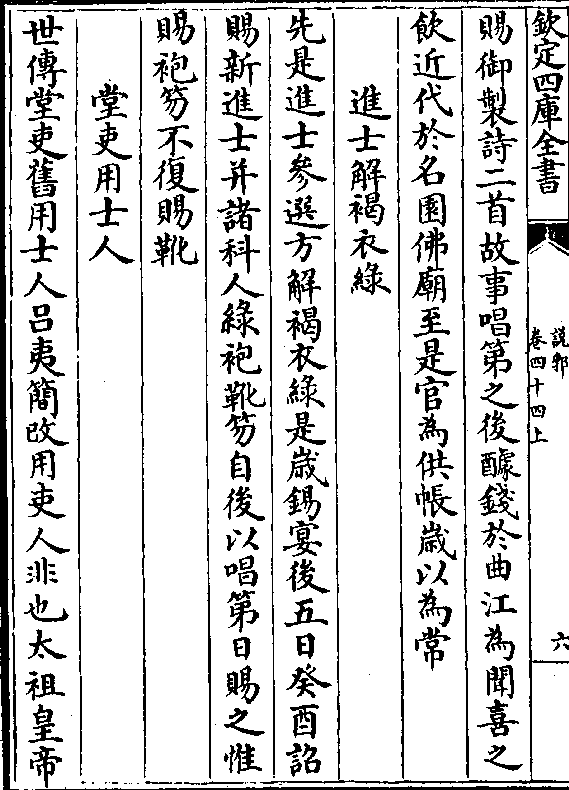 欽定四庫全書
說郛
卷四十四上
六
賜御製詩二首故事唱第之後醵錢於曲江為聞喜之
飲近代於名園佛廟至是官為供帳歲以為常
進士解褐衣綠
先是進士參選方解褐衣綠是歲錫宴後五日癸酉詔
賜新進士并諸科人綠袍靴笏自後以唱第日賜之惟
賜袍笏不復賜靴
堂吏用士人
世傳堂吏舊用士人呂夷簡改用吏人非也太祖皇帝